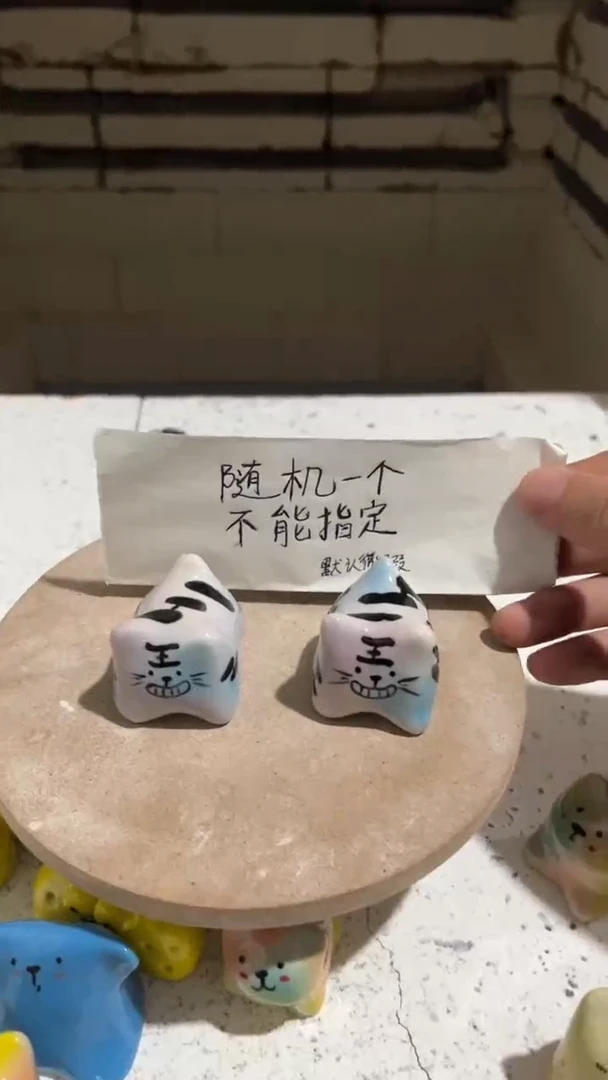 随机一个
不能指定
默认
王
王